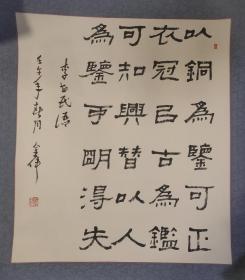 以銅為鑒可正
衣冠以古為鑑
可知興替以人
為鑒可明得失
李世民語
壬午年